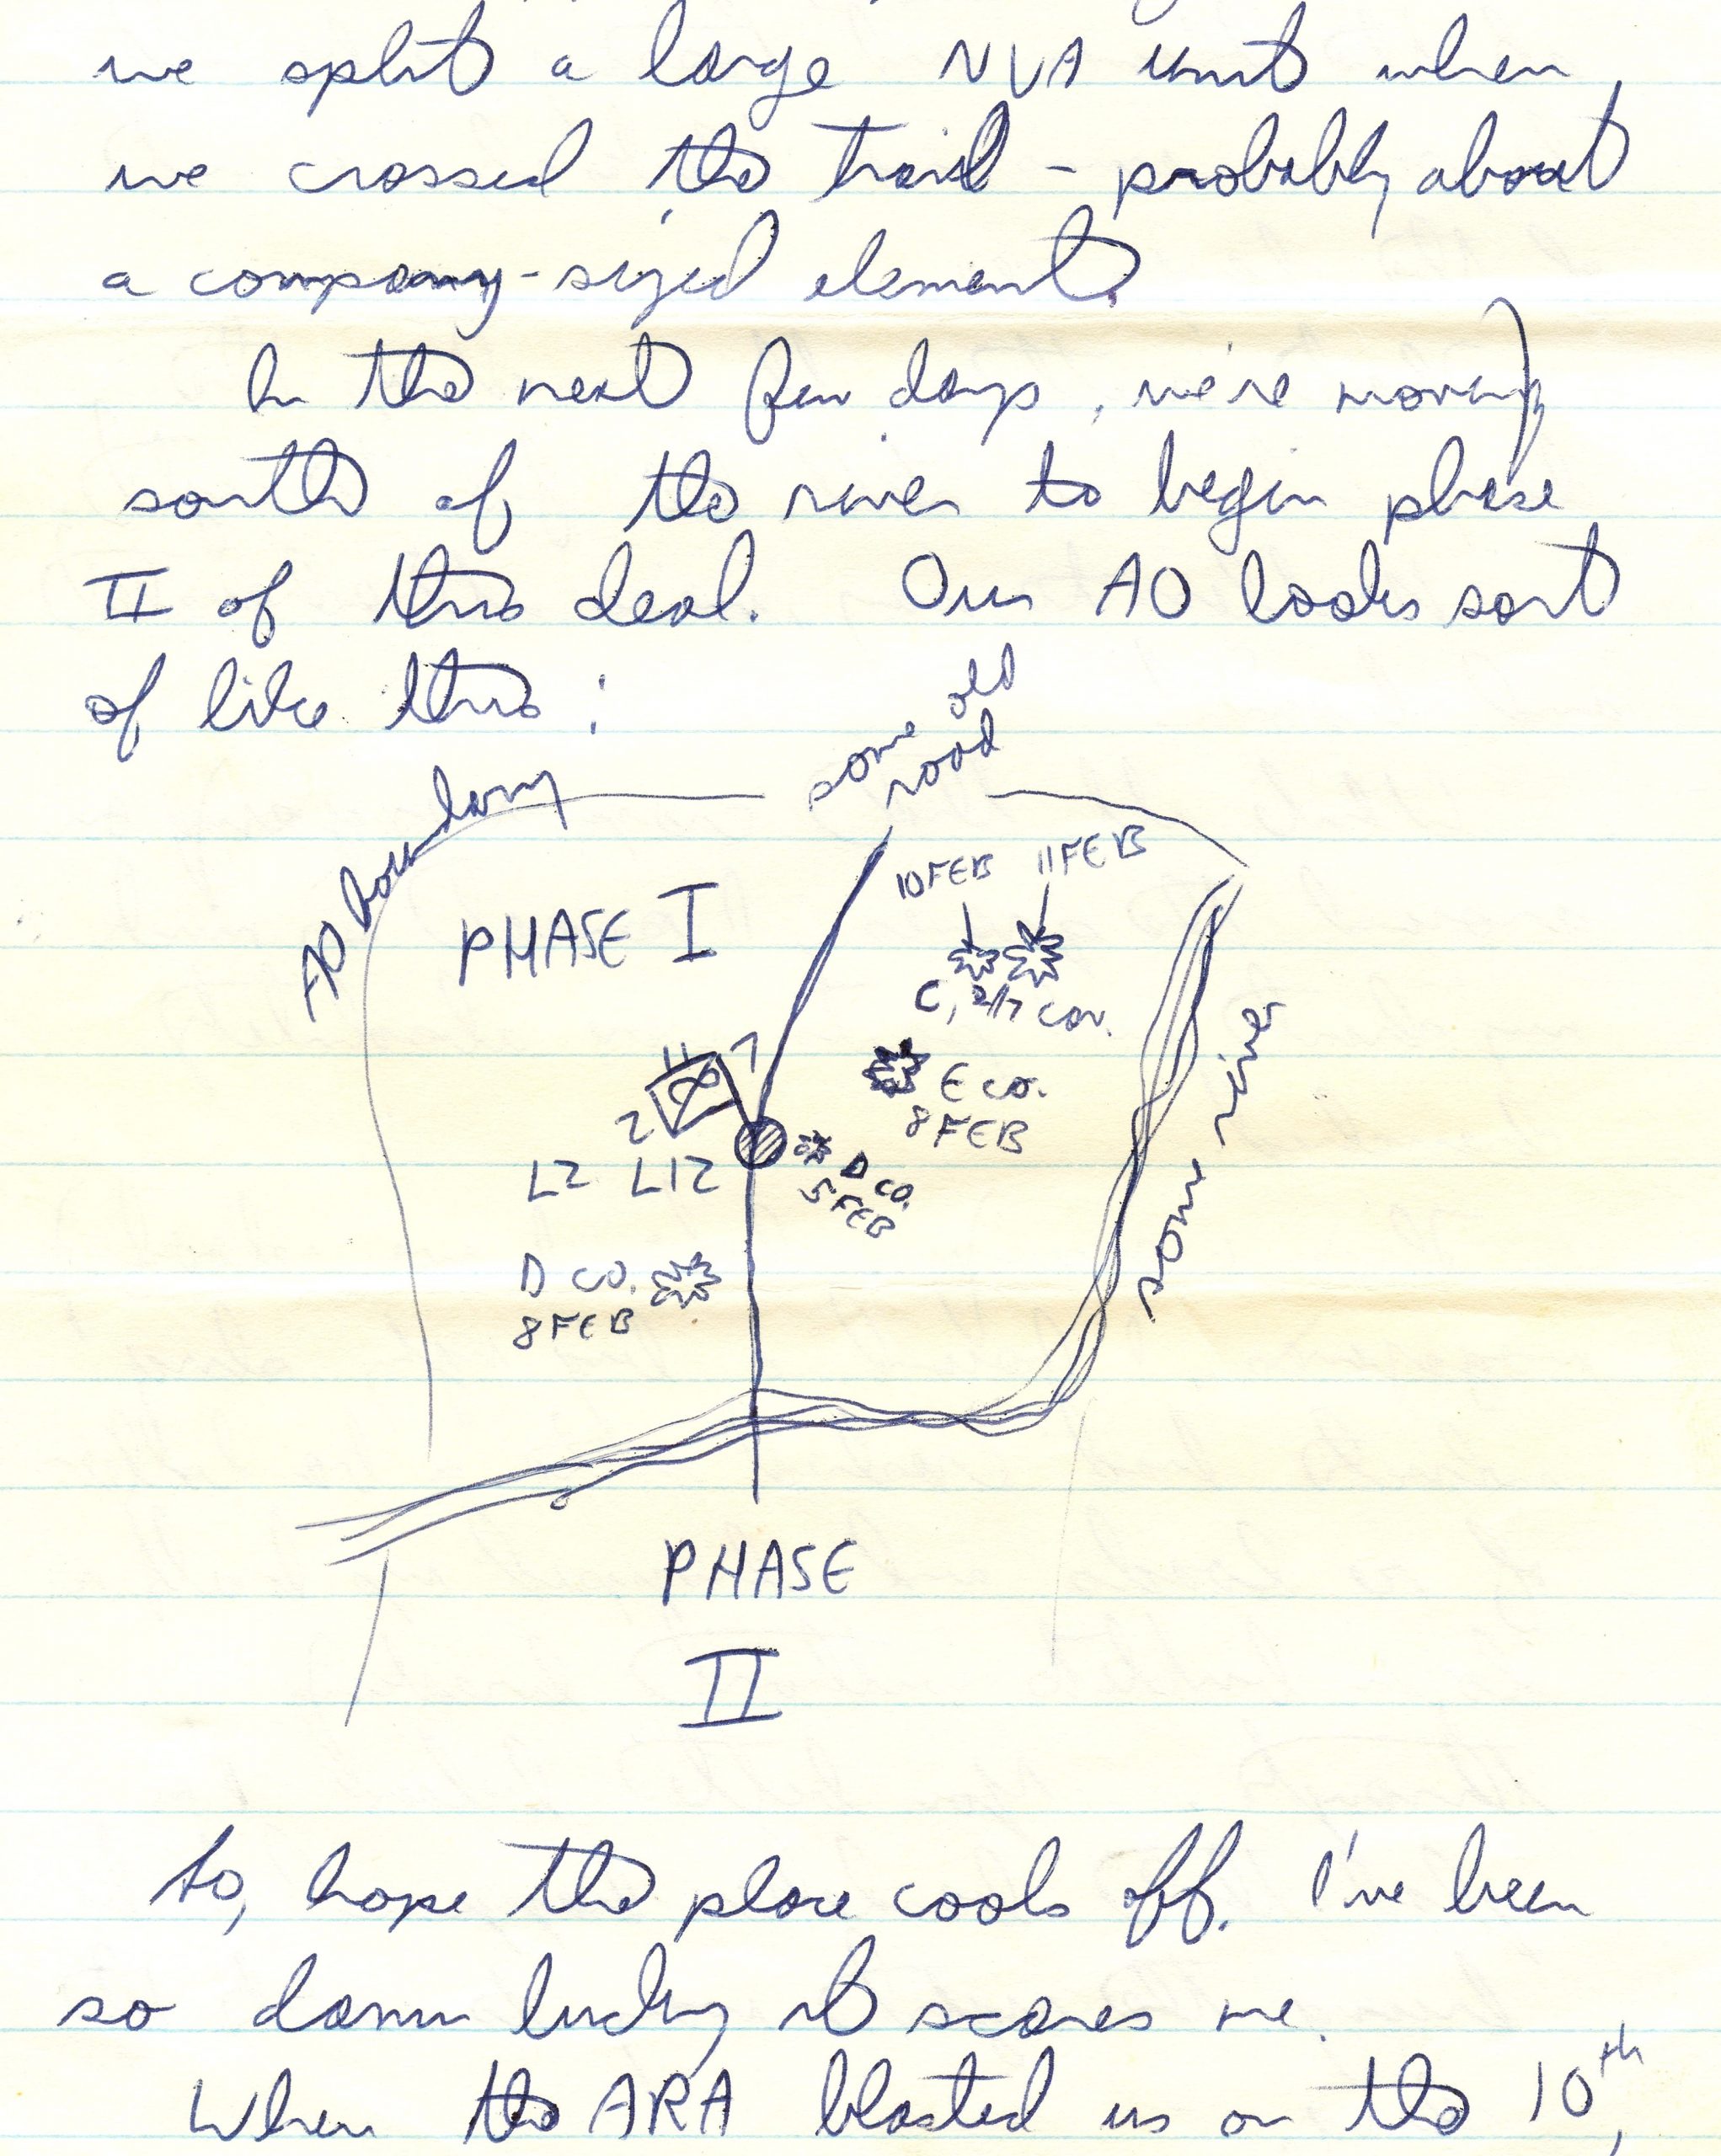 we split a large NVA unit when
we crossed the trail - probably about
a company-sized element.
In the next few days, we're moving
south of the river to begin phase
II of this deal. Our AO looks sort
of like this:
some old
road
AO boundary
10 FEB 11 FEB
PHASE I
C, 2/7 cav.
some river
II 7
2
E co.
8 FEB
LZ LIZ
D co.
5 FEB
D co.
8 FEB
PHASE
II
So, hope the place cools off. I've been
so damn lucky it scares me.
When the ARA blasted us on the 10th,